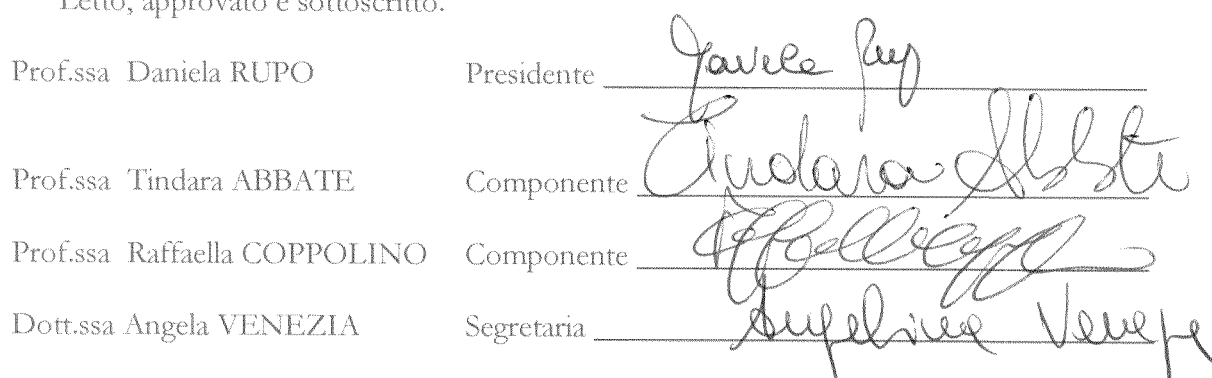 Letto, approvato e sottoscritto.
Prof.ssa Daniela RUPO Presidente
Prof.ssa Tindara ABBATE Componente Tindara Abbate
Prof.ssa Raffaella COPPOLINO Componente
Dott.ssa Angela VENEZIA Segretaria Angelina